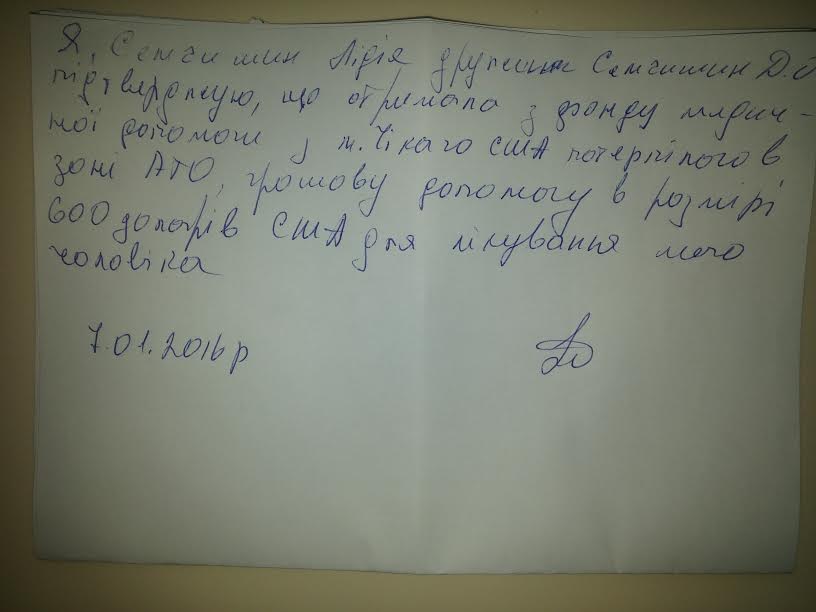 Я, Семчишин Лідія дружина Семчишин Д.О
підтверджую, що отримала з фонду медич-
ної допомоги з м. Чікаго США потерпілого в
зоні АТО, грошову допомогу в розмірі
600 доларів США для лікування мого
чоловіка
7.01.2016р